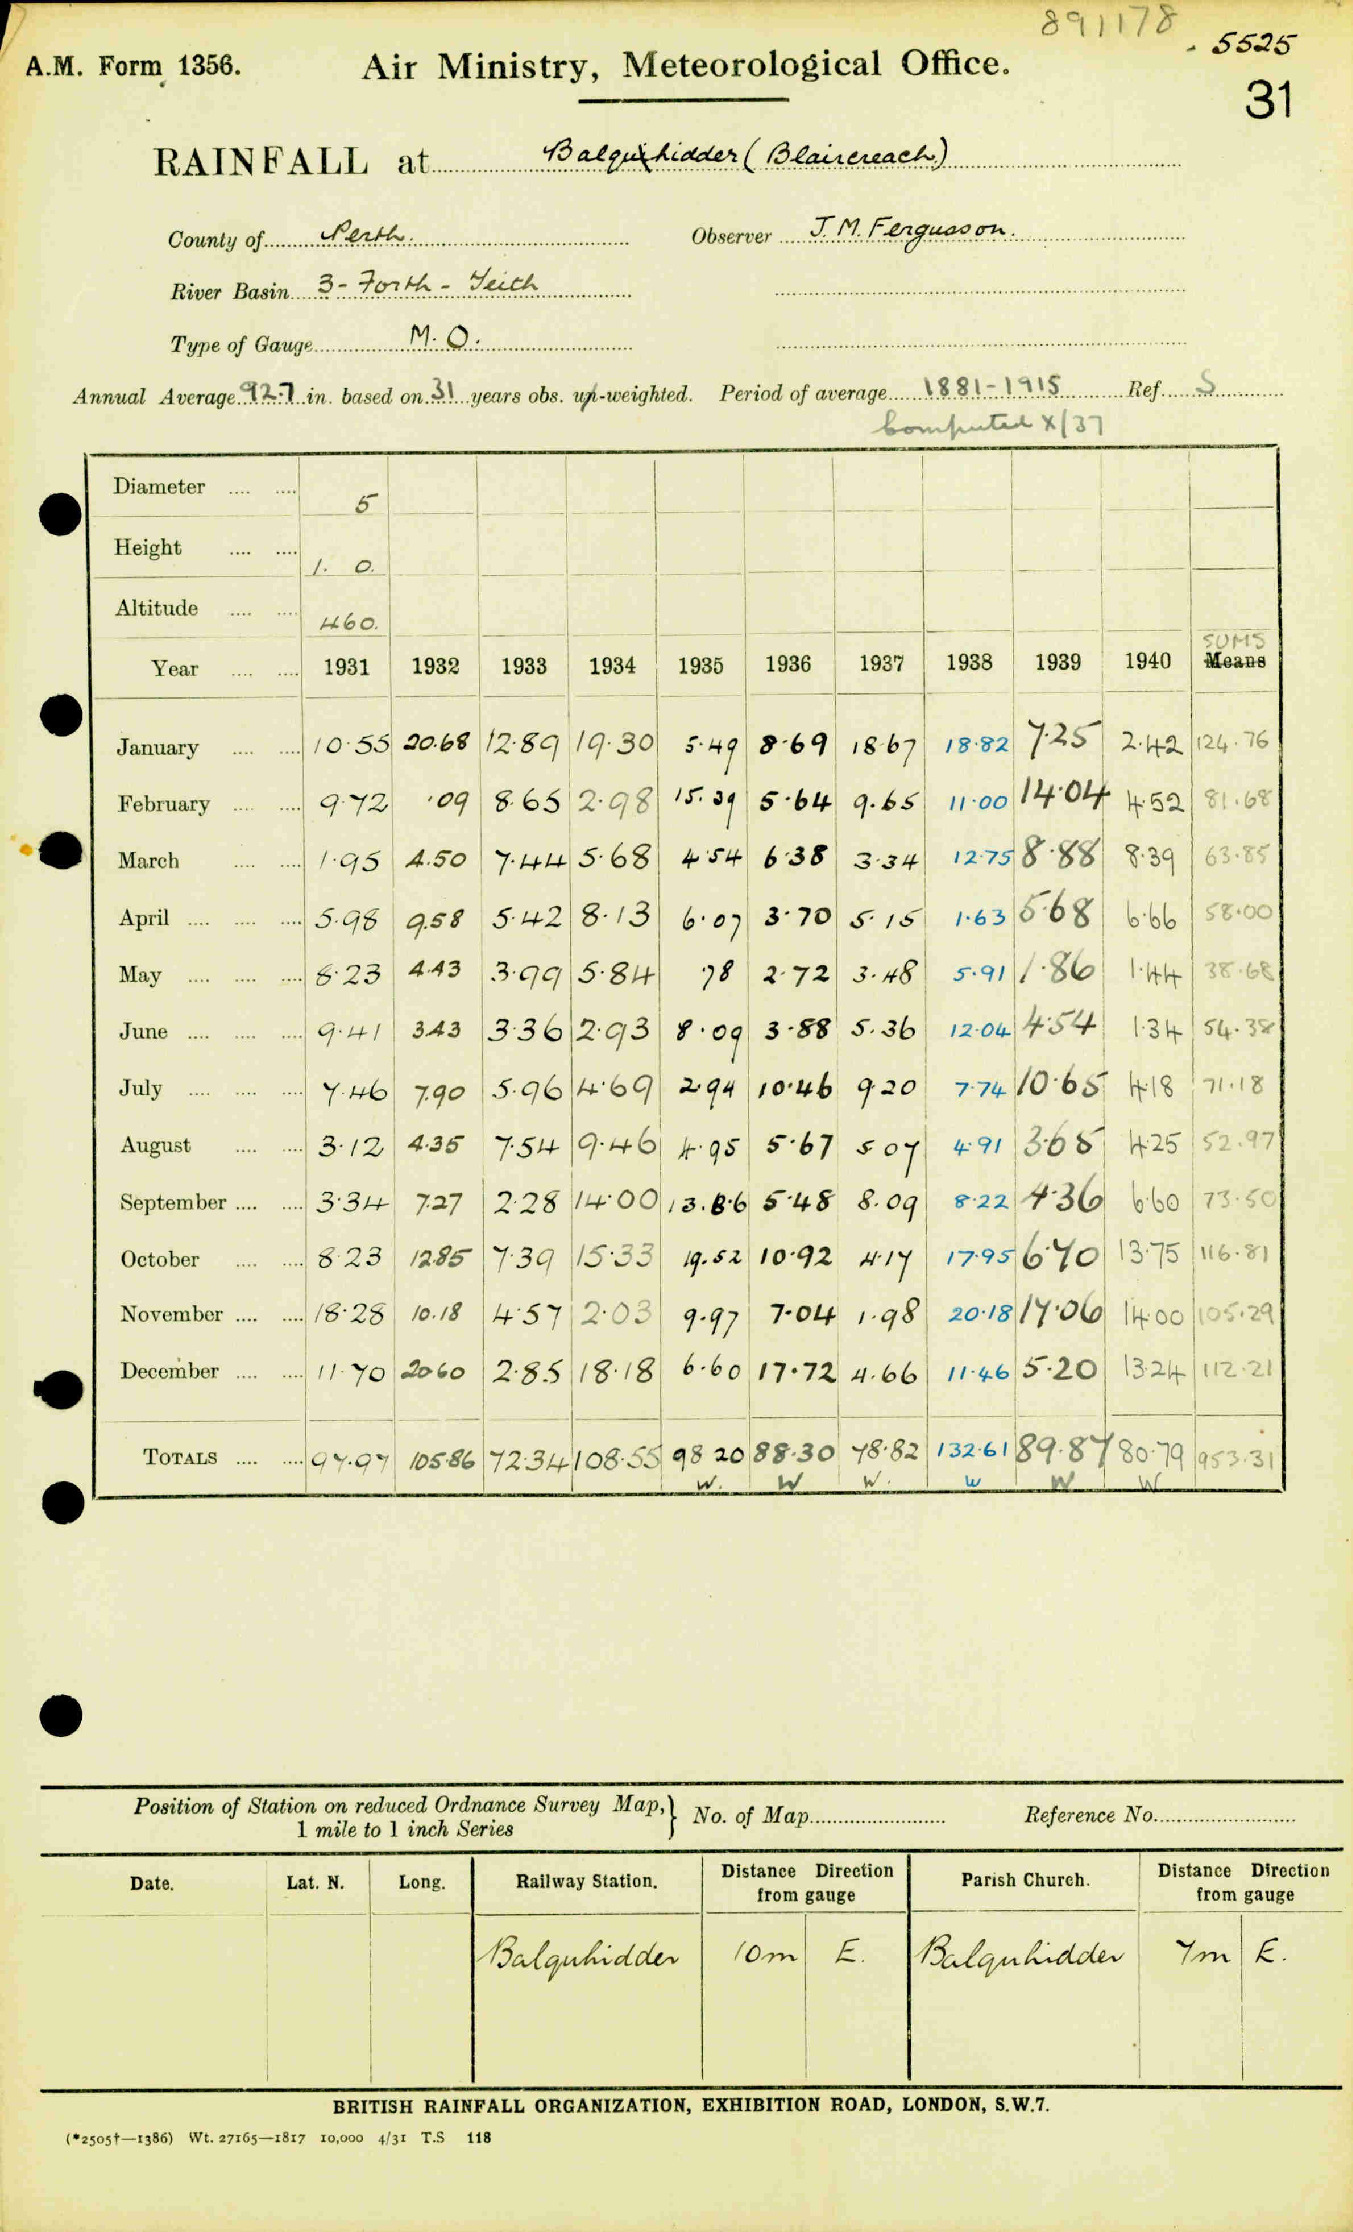 891178
5525
A.M. Form 1356. Air Ministry, Meteorological Office.
31
RAINFALL at Balquhidder (Blaircreach)
County of Perth. Observer J. M. Fergusson.
River Basin 3 - Forth - Teith
Type of Gauge M. O.
Annual Average 92.7 in. based on 31 years obs. un-weighted. Period of average 1881-1915 Ref. S
Computed X/37
Diameter 5
Height 1. 0.
Altitude 460.
SUMS
Year 1931 1932 1933 1934 1935 1936 1937 1938 1939 1940 Means
January 10.55 20.68 12.89 19.30 5.49 8.69 18.67 18.82 7.25 2.42 124.76
February 9.72 .09 8.65 2.98 15.39 5.64 9.65 11.00 14.04 4.52 81.68
March 1.95 4.50 7.44 5.68 4.54 6.38 3.34 12.75 8.88 8.39 63.85
April 5.98 9.58 5.42 8.13 6.07 3.70 5.15 1.63 5.68 6.66 58.00
May 8.23 4.43 3.99 5.84 .78 2.72 3.48 5.91 1.86 1.44 38.68
June 9.41 3.43 3.36 2.93 8.09 3.88 5.36 12.04 4.54 1.34 54.38
July 7.46 7.90 5.96 4.69 2.94 10.46 9.20 7.74 10.65 4.18 71.18
August 3.12 4.35 7.54 9.46 4.95 5.67 5.07 4.91 3.65 4.25 52.97
September 3.34 7.27 2.28 14.00 13.86 5.48 8.09 8.22 4.36 6.60 73.50
October 8.23 12.85 7.39 15.33 19.52 10.92 4.17 17.95 6.70 13.75 116.81
November 18.28 10.18 4.57 2.03 9.97 7.04 1.98 20.18 17.06 14.00 105.29
December 11.70 20.60 2.85 18.18 6.60 17.72 4.66 11.46 5.20 13.24 112.21
TOTALS 97.97 105.86 72.34 108.55 98.20 88.30 78.82 132.61 89.87 80.79 953.31
W. W W. W W W
Position of Station on reduced Ordnance Survey Map, No. of Map Reference No.
1 mile to 1 inch Series
Date. Lat. N. Long. Railway Station. Distance Direction from gauge Parish Church. Distance Direction from gauge
Balquhidder 10m E. Balquhidder 7m E.
BRITISH RAINFALL ORGANIZATION, EXHIBITION ROAD, LONDON, S.W.7.
(*2505†—1386) Wt. 27165—1817 10,000 4/31 T.S 118